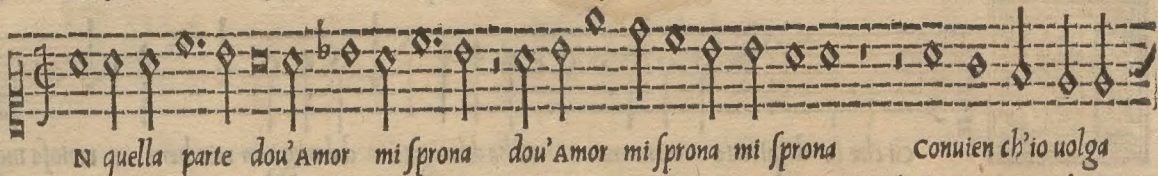 N quella parte dou'Amor mi ſprona dou'Amor mi ſprona mi ſprona Conuien ch'io uolga